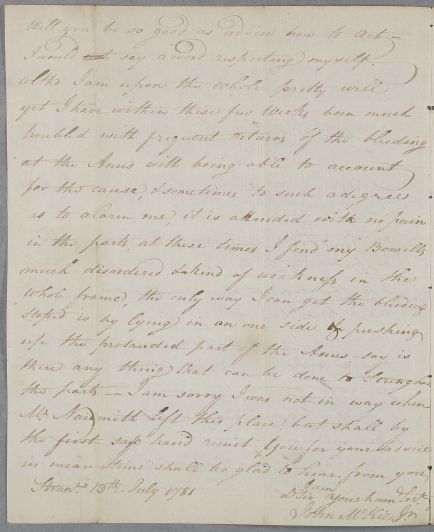 Will you be so good as advise how to act —
I would say a word respecting myself.
altho I am upon the whole pretty well
yet I have within these few Weeks been much
troubled with frequent returns of the bleeding
at the Anus with being able to account
for the cause, & sometimes to such a degree
as to alarm me, it is attended with no pain
in the parts, at these times I find my Bowells
much disordered & kind of weakness in the
whole frame, the only way I can get the bleeding
stop'd is by lying in on one side & pushing
up the protruded part of the Anus, say is
there any thing that can be done to Strengthen
the parts — I am sorry I was not in way when
Mr Naismith left this place, but shall by
the first safe hand remit you for your advice
in mean time shall be glad to hear from you
I am
Stranr. 13th July 1781
D Sir your hum Servt
John McKie Jr